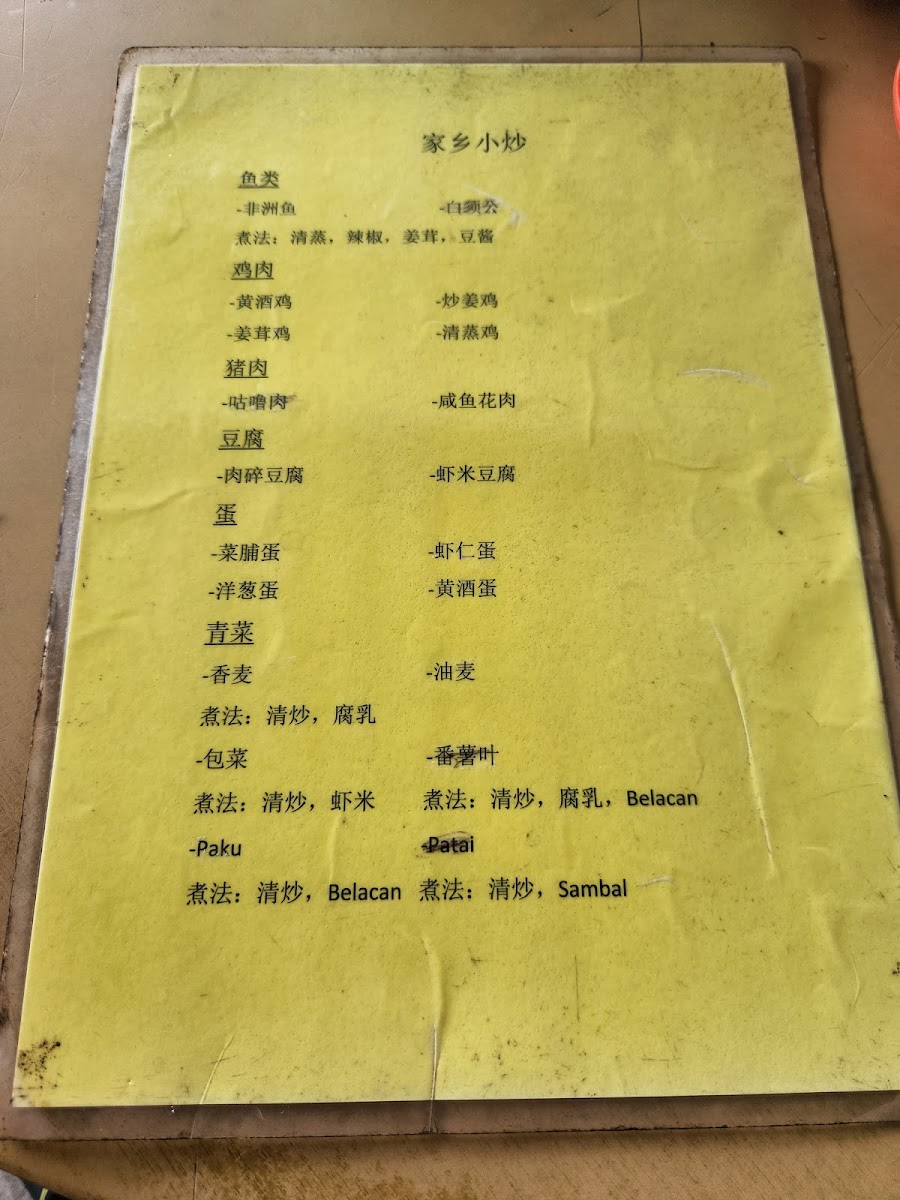 家乡小炒
鱼类
-非洲鱼 -白须公
煮法：清蒸，辣椒，姜茸，豆酱
鸡肉
-黄酒鸡 -炒姜鸡
-姜茸鸡 -清蒸鸡
猪肉
-咕噜肉 -咸鱼花肉
豆腐
-肉碎豆腐 -虾米豆腐
蛋
-菜脯蛋 -虾仁蛋
-洋葱蛋 -黄酒蛋
青菜
-香麦 -油麦
煮法：清炒，腐乳
-包菜 -番薯叶
煮法：清炒，虾米 煮法：清炒，腐乳，Belacan
-Paku -Patai
煮法：清炒，Belacan 煮法：清炒，Sambal